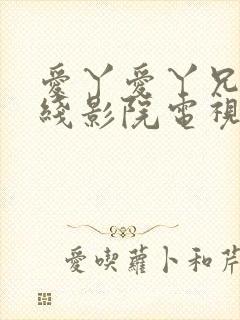 愛丫愛丫兄
綫影院電視
愛喫蘿卜和芹